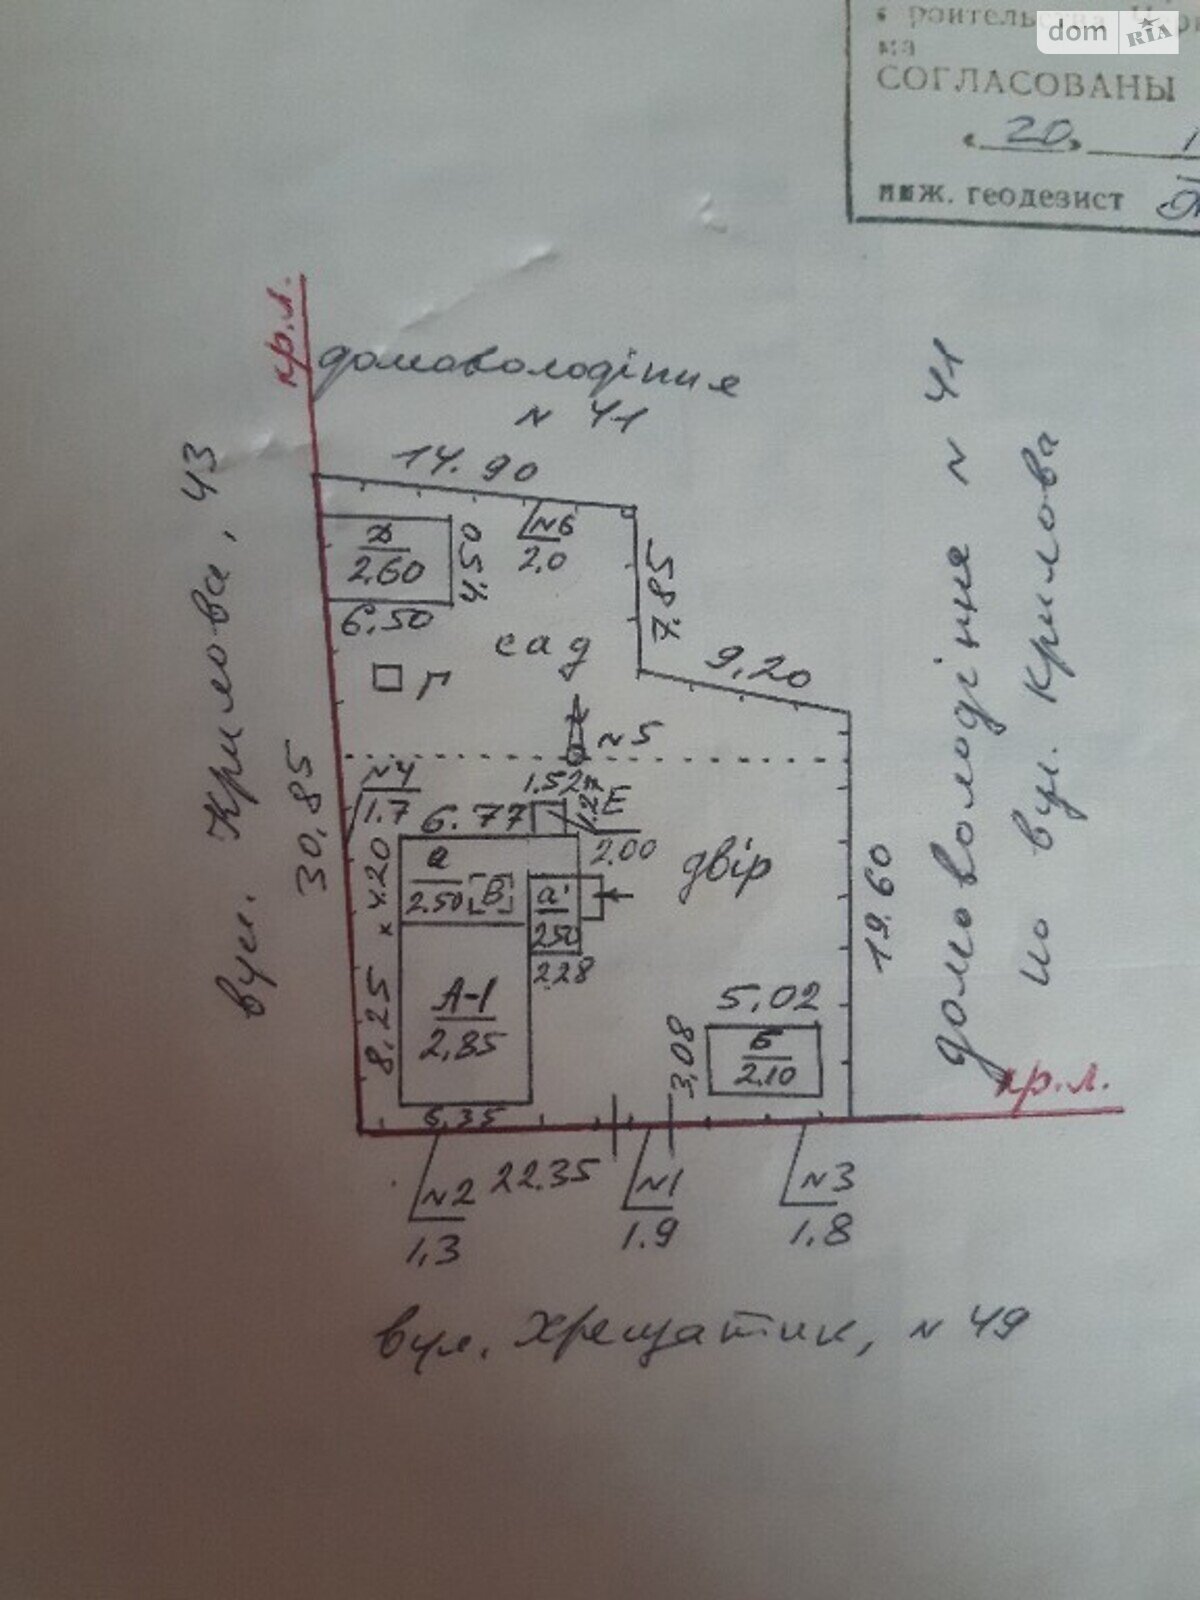 dom RIA
СОГЛАСОВАНЫ
« 20 »
инж. геодезист
кр.л.
домоволодіння
N 41
вул. Крилова, 43
14.90
Д
2.60
4.50
6.50
N6
2.0
7.85
сад
9,20
Г
N5
30,85
N4
1.7
1.52
1.27
Е
2.00
6.77
4.20
а
2.50
В
а'
250
228
двір
19.60
8,25
А-1
2,85
6,35
5,02
3,08
Б
2.10
домоволодіння N 41
по вул. Крилова
кр.л.
22.35
N2
1,3
N1
1.9
N3
1.8
вул. Хрещатик, N 49